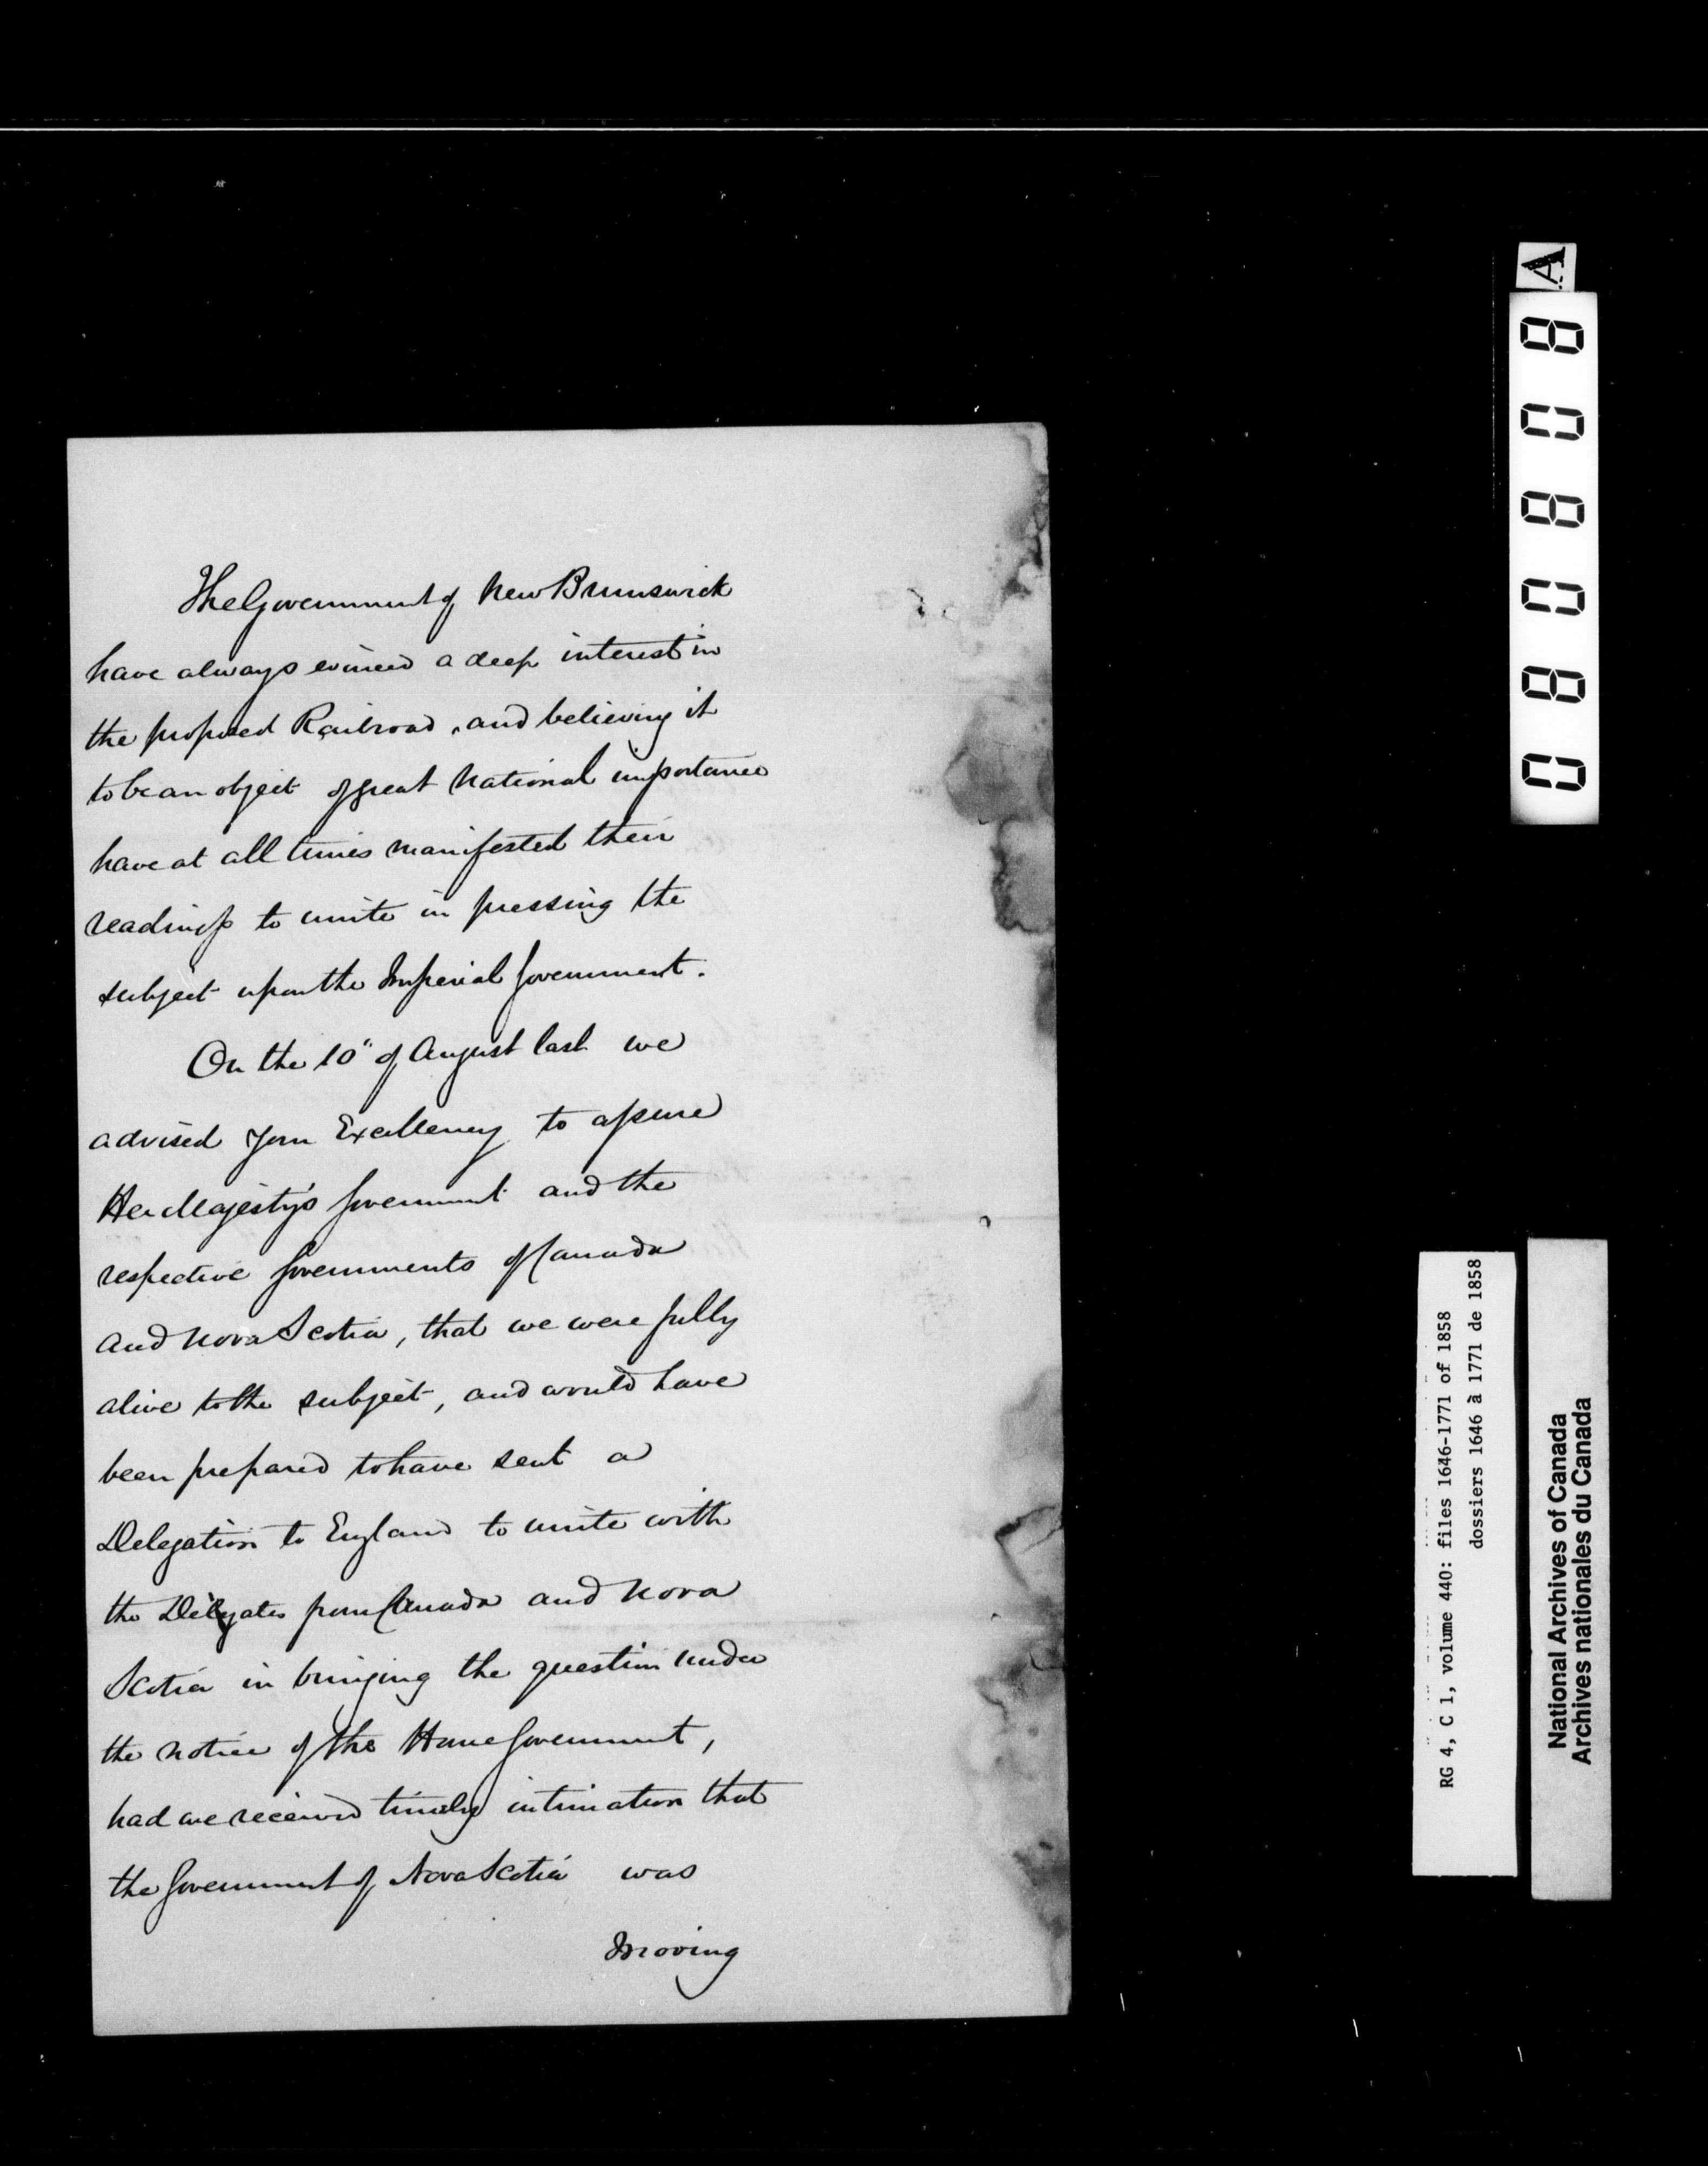 The Government of New Brunswick
have always evinced a deep interest in
the proposed Railroad, and believing it
to be an object of great National importance
have at all times manifested their
readiness to unite in pressing the
subject upon the Imperial Government.
On the 10" of August last we
advised Your Excellency to assure
Her Majesty's Government and the
respective Governments of Canada
and Nova Scotia, that we were fully
alive to the subject, and would have
been prepared to have sent a
Delegation to England to unite with
the Delegates from Canada and Nova
Scotia in bringing the question under
the notice of the Home Government,
had we received timely intimation that
the Government of Nova Scotia was
moving
A
080808
RG 4, C 1, volume 440: files 1646-1771 of 1858
dossiers 1646 à 1771 de 1858
National Archives of Canada
Archives nationales du Canada